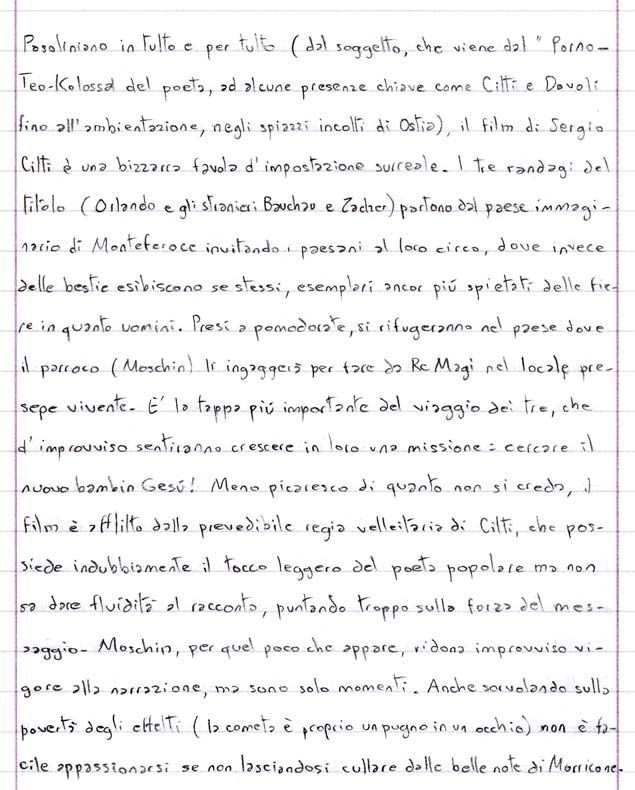 Pasoliniano in tutto e per tutto (dal soggetto, che viene dal "Porno-
Teo-Kolossal del poeta, ad alcune presenze chiave come Citti e Davoli
fino all'ambientazione, negli spiazzi incolti di Ostia), il film di Sergio
Citti è una bizzarra favola d'impostazione surreale. I tre randagi del
titolo (Orlando e gli stranieri Bauchau e Zacher) partono dal paese immagi-
nario di Monteferoce invitando i paesani al loro circo, dove invece
delle bestie esibiscono se stessi, esemplari ancor più spietati delle fie-
re in quanto uomini. Presi a pomodorate, si rifugeranno nel paese dove
il parroco (Moschin) li ingaggerà per fare da Re Magi nel locale pre-
sepe vivente. E' la tappa più importante del viaggio dei tre, che
d'improvviso sentiranno crescere in loro una missione: cercare il
nuovo bambin Gesù! Meno picaresco di quanto non si creda, il
film è afflitto dalla prevedibile regia velleitaria di Citti, che pos-
siede indubbiamente il tocco leggero del poeta popolare ma non
sa dare fluidità al racconto, puntando troppo sulla forza del mes-
saggio. Moschin, per quel poco che appare, ridona improvviso vi-
gore alla narrazione, ma sono solo momenti. Anche sorvolando sulla
povertà degli effetti (la cometa è proprio un pugno in un occhio) non è fa-
cile appassionarsi se non lasciandosi cullare dalle belle note di Morricone.